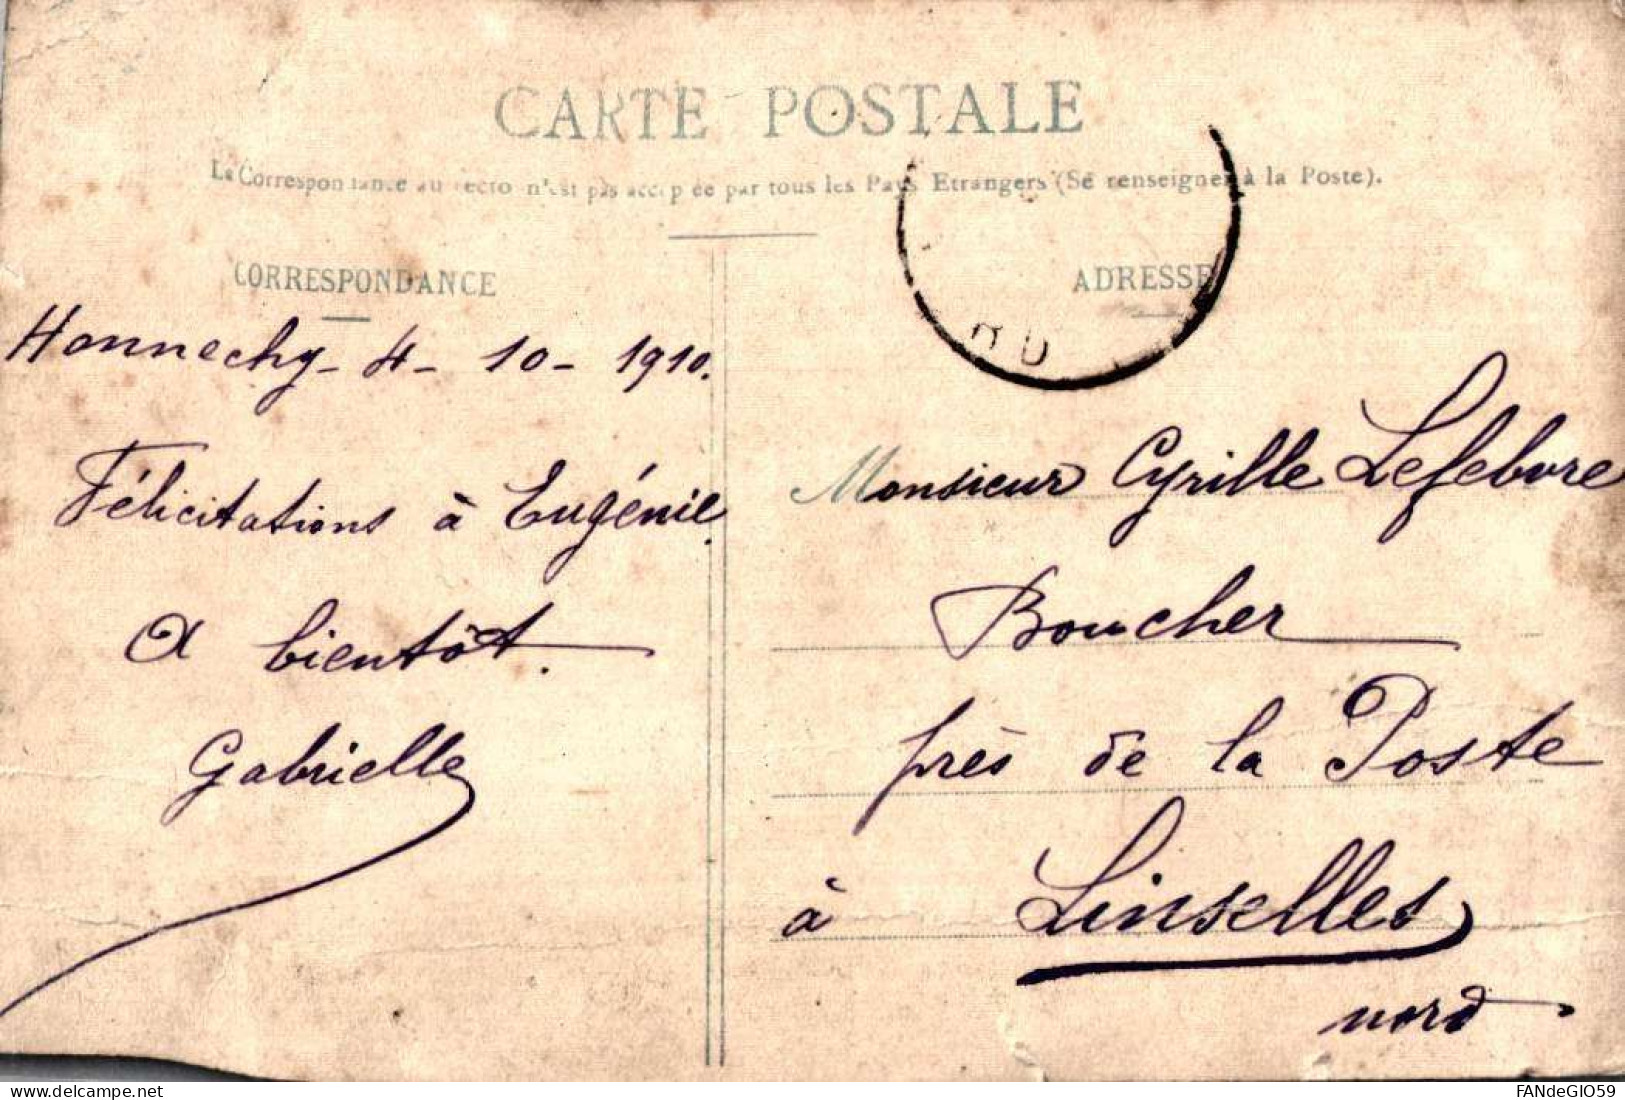 CARTE POSTALE
La Correspondance au recto n'est pas acceptée par tous les Pays Etrangers (Se renseigner à la Poste).
CORRESPONDANCE
Honnechy - 4 - 10 - 1910.
Félicitations à Eugénie.
A bientôt.
Gabrielle
ADRESSE
RD
Monsieur Cyrille Lefebvre
Boucher
près de la Poste
à Linselles
nord
delcampe.net
FANdeGIO59